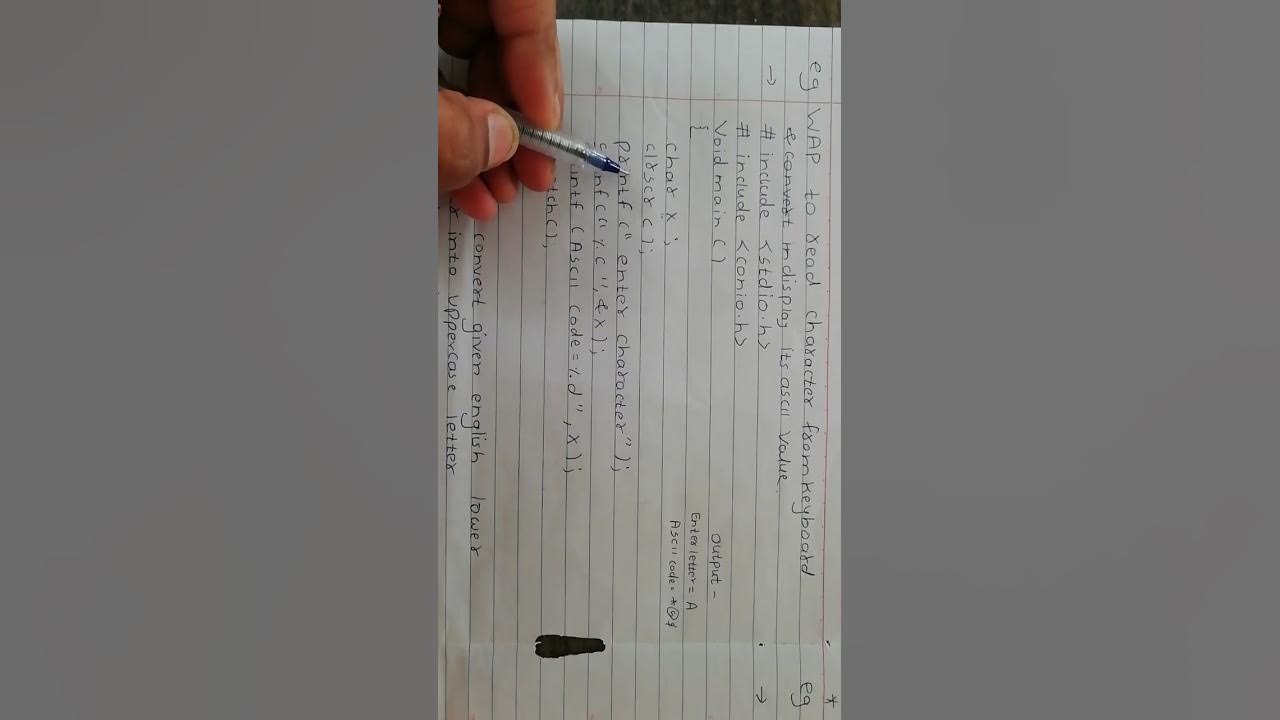 *
eg WAP to read character from keyboard
& convert n display its ascii value.
→ # include <stdio.h>
# include <conio.h>
Void main ( )
{
char x ;
clrscr ( );
printf (" enter character" );
scanf (" %c ", & x );
printf ( Ascii code = %d ", x );
getch( );
convert given english lower
into uppercase letter
output -
Enter letter = A
Ascii code =
eg
→